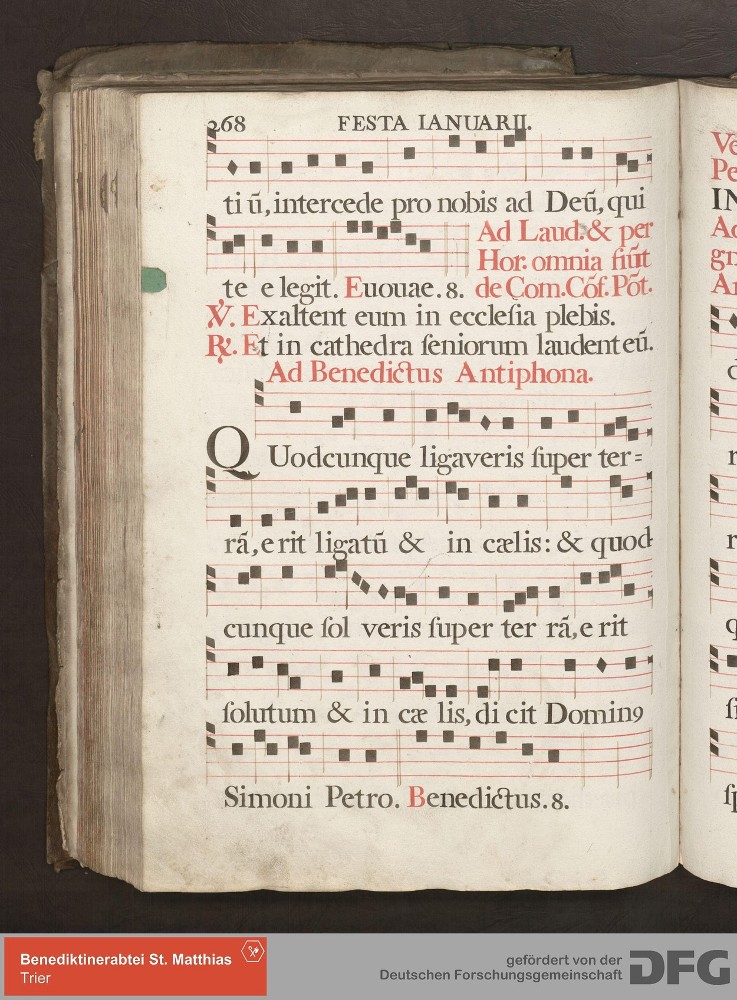 268 FESTA IANUARII.
ti ũ, intercede pro nobis ad Deũ, qui
Ad Laud. & per
Hor. omnia fiũt
te e legit. Euouae. 8. de Com. Cõf. Põt.
℣. Exaltent eum in ecclesia plebis.
℟. Et in cathedra seniorum laudent eũ.
Ad Benedictus Antiphona.
QUodcunque ligaveris super ter=
rã, e rit ligatũ & in cælis: & quod
cunque sol veris super ter rã, e rit
solutum & in cæ lis, di cit Dominꝰ
Simoni Petro. Benedictus. 8.
Benediktinerabtei St. Matthias
Trier
gefördert von der
Deutschen Forschungsgemeinschaft DFG